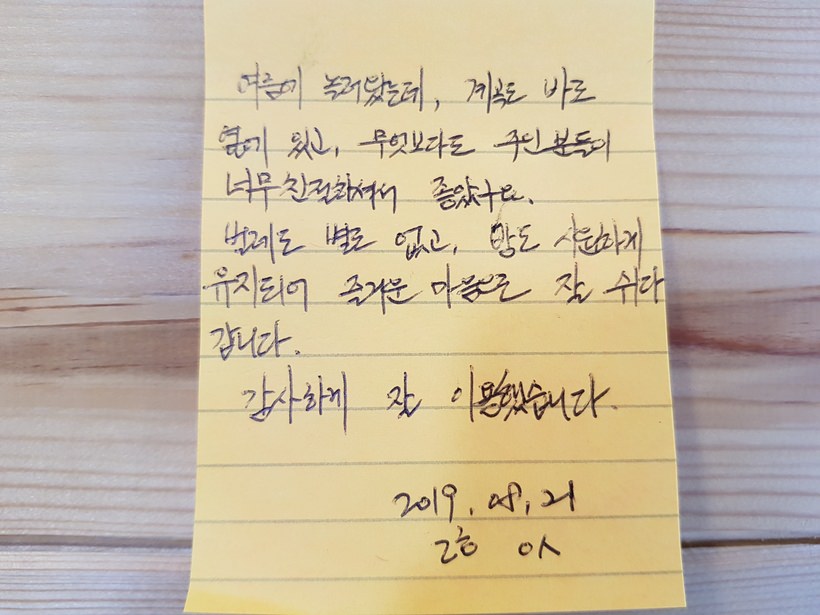 여름에 놀러왔는데, 계곡도 바로
옆에 있고, 무엇보다도 주인분들이
너무 친절하셔서 좋았구요.
벌레도 별로 없고, 방도 시원하게
유지되어 즐거운 마음으로 잘 쉬다
갑니다.
감사하게 잘 이용했습니다.
2019. 08. 21
2층